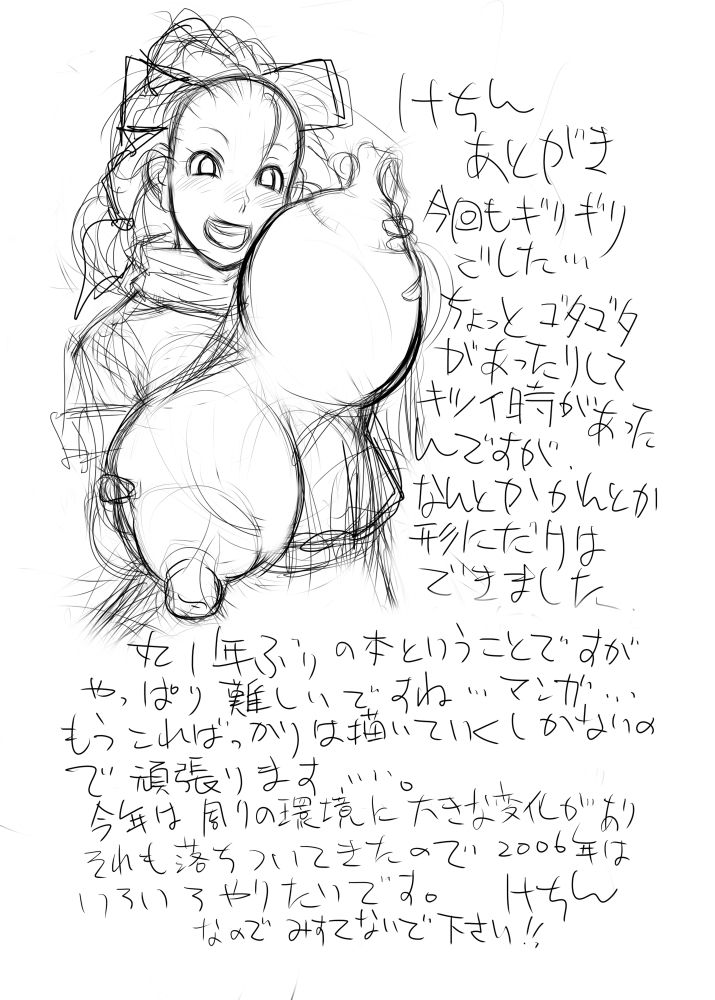 けちん
あとがき
今回もギリギリ
でした…
ちょっとゴタゴタ
があったりして
キツイ時があった
んですが、
なんとかかんとか
形にだけは
できました
丸1年ぶりの本ということですが
やっぱり難しいですね…マンガ…
もうこればっかりは描いていくしかないの
で頑張ります……。
今年は周りの環境に大きな変化があり
それも落ちついてきたので2006年は
いろいろやりたいです。 けちん
なのでみすてないで下さい!!